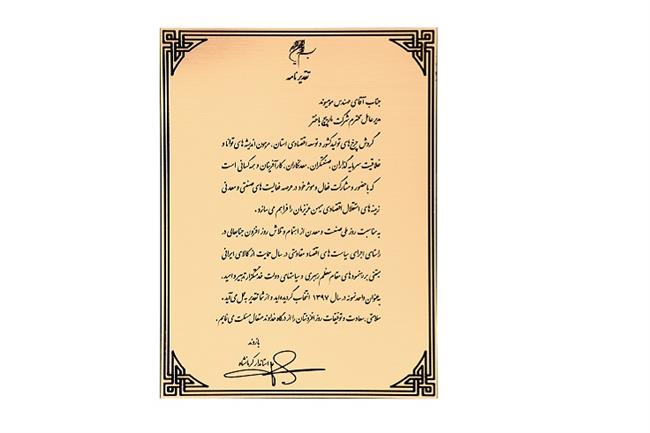 تقدیرنامه
جناب آقای مهندس مومیوند
مدیرعامل محترم شرکت مارپیچ باختر
گردش چرخ های تولید کشور و توسعه اقتصادی استان، مرهون اندیشه های توانا و
خلاقیت سرمایه گذاران، صنعتگران، معدنکاران، کارآفرینان و همه کسانی است
که با حضور و مشارکت فعال و موثر خود در عرصه فعالیت های صنعتی و معدنی
زمینه های استقلال اقتصادی میهن عزیزمان را فراهم می سازد.
به مناسبت روز ملی صنعت و معدن از اهتمام و تلاش روز افزون جنابعالی در
راستای اجرای سیاست های اقتصاد مقاومتی در سال حمایت از کالای ایرانی
مبتنی بر رهنمودهای مقام معظم رهبری و سیاستهای دولت خدمتگزار تدبیر و امید،
بعنوان واحد نمونه در سال ۱۳۹۷ انتخاب گردیده اید و از شما تقدیر به عمل می آید.
سلامتی، سعادت و توفیقات روز افزونتان را از درگاه خداوند متعال مسئلت می نمایم.
بازوند
استاندار کرمانشاه